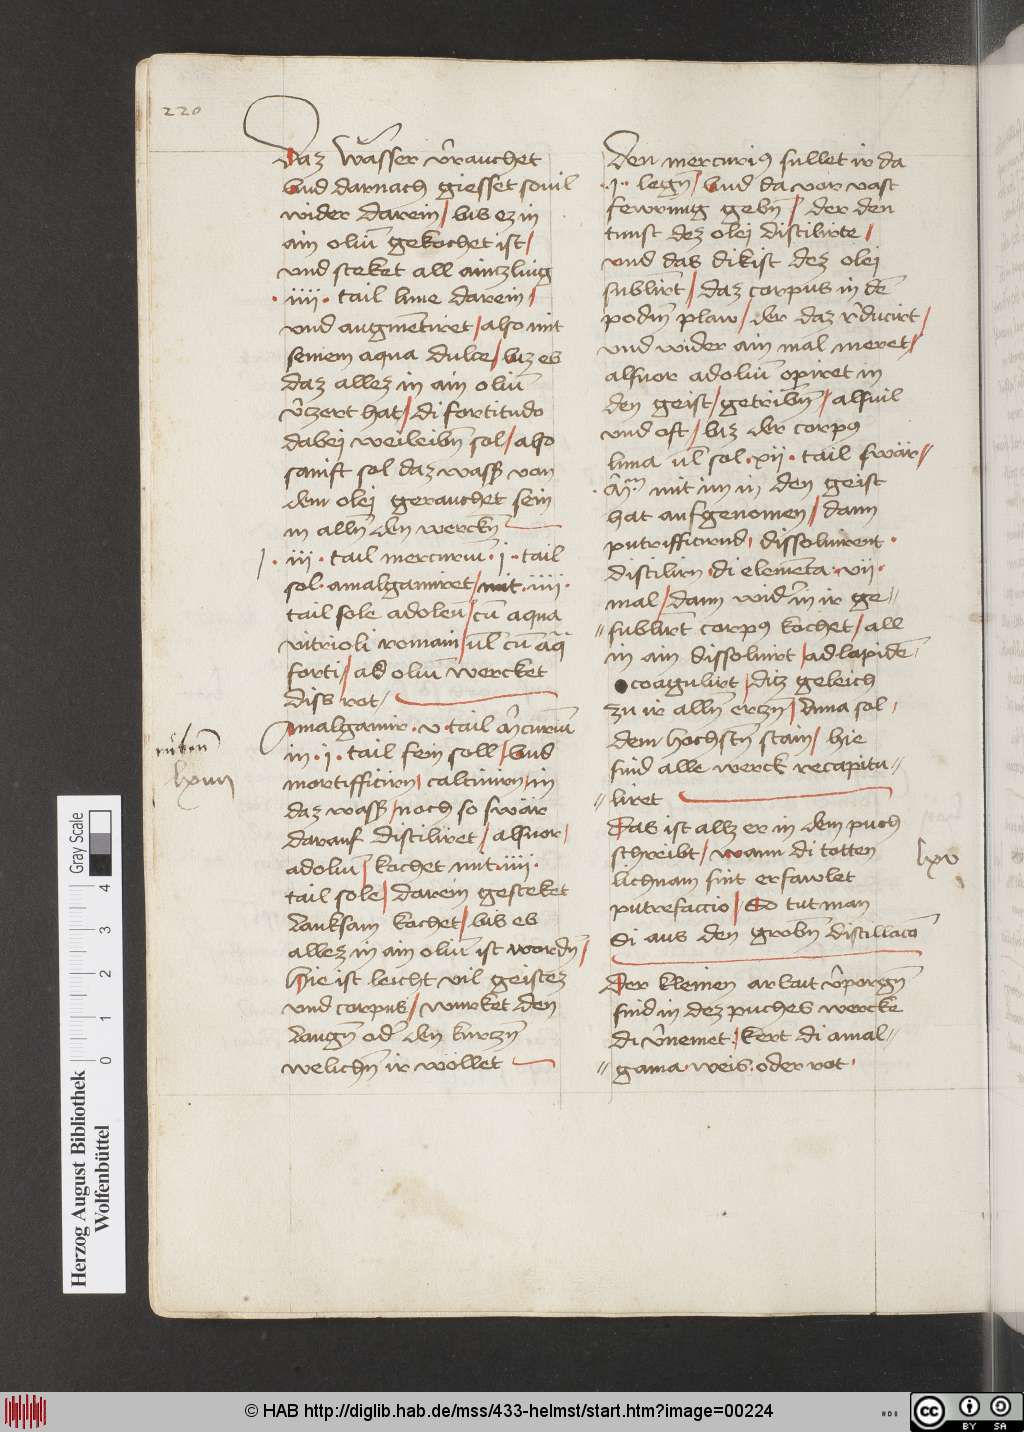 220
Daz wasser v̄rauchet
vnd darnach giesset souil
wider darein / bis ez in
ain oliū gekochet ist /
vnd steket all aintzling
· iiii · tail lune darein /
vnd augmētiret / also mit
seinem aqua dulce / biz es
daz allez in ain oliū
v̄czert hat / di fortitudo
dabej weileibn̄ sol / also
sanift sol daz wasß von
dem olej gerauchet sein
in alln̄ den werckn̄
· iii · tail mercuriū · i · tail
sol · amalgamiret / mit · iiii ·
tail sole adoleū / cū aqua
vitrioli romani / ul̄ cū aq̄
forti / ad oliū wercket
diss rot /
Amalgamir · v · tail m̄curiū
in · i · tail fein soll / vnd
mortifficirn / calcinirn / in
daz wasß / noch so swär
darauf distiliret / alsuor /
adoliū / kochet mit · iiii ·
tail sole / darein gesteket
Lanksam kochet / bis es
allez in ain oliū ist wordn̄ /
Hie ist leicht vil geistez
vnd corpus / wurket den
Laugn̄ od̄ den kurczn̄
welichn̄ ir wöllet
lxiiii
Den mercuriꝯ sullet ir da
· i · legn̄ / vnd da vor vast
fewrinig gebn̄ / der den
tunst dez olej distilirte /
vnd das dikist dez olej
sublirt / daz corpus in dē
podm̄ plaw / der daz r̄ducirt /
vnd wider ain mal meret /
alsuor adoliū opiret in
den geist / getribn̄ / alsuil
vnd oft / biz der corpꝯ
luna ul̄ sol · xii · tail swär /
mit im in den geist
hat aufgenomen / dann
putrifficirnd / dissoluirent ·
distilirn · di elemēta · vii ·
mal / dann wid̄ in ir ge //
// sublirt corpꝯ kochet / all
in ain dissoluirt / ad lapidē
coagulirt / ditz geleich
zu ir alln̄ erczn̄ / Anna sol /
dem hochstn̄ stain / hie
sind alle werck recapitu //
// liret
Das ist allz er in dem puch
schreibt / wann di totten
lichnam sint erfawlet
putrefaccio / So tut man
di aus den grobn̄ distillaco
lxv
Der kleinen arbait v̄porgn̄
sind in dez puches wercke
di v̄nemet / kert di amal //
// gama · weis · oder rot ·
Herzog August Bibliothek
Wolfenbüttel
Gray Scale
0 1 2 3 4
© HAB http://diglib.hab.de/mss/433-helmst/start.htm?image=00224
cc BY SA